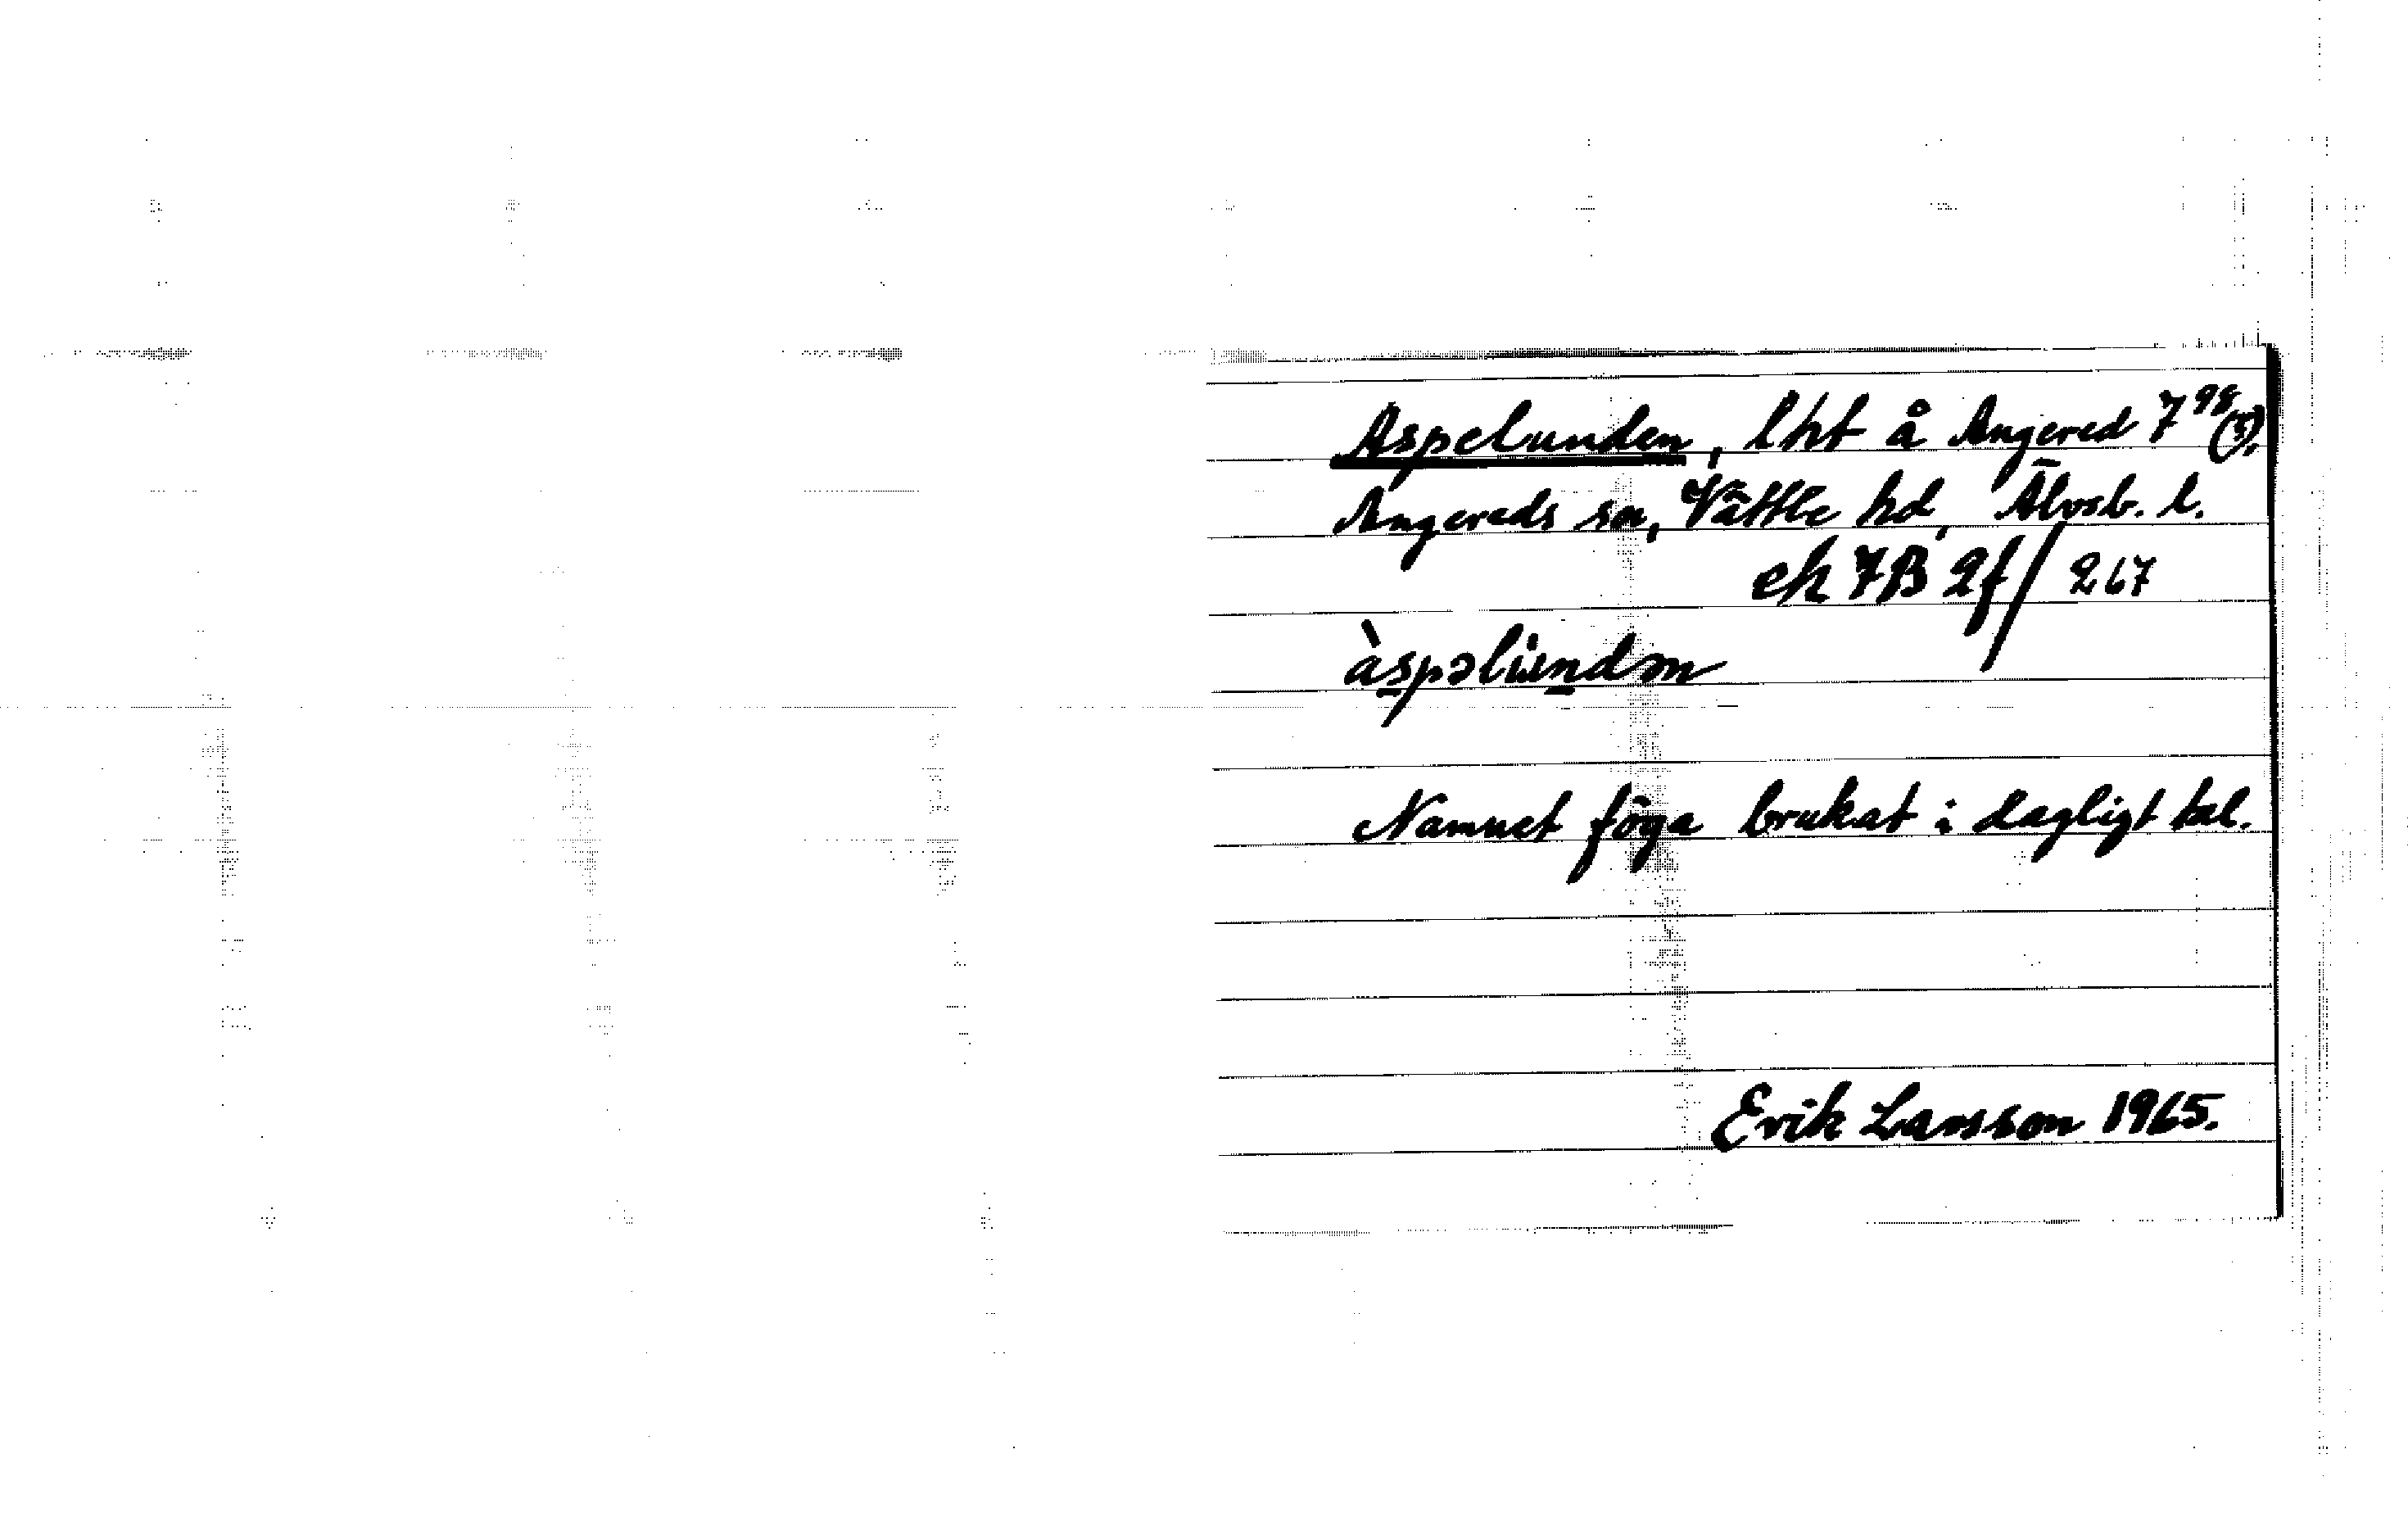 Aspelunden, lht å Angered 7⁹⁸(5),
Angereds sn, Vättle hd, Älvsb. l.
ek 7B 2f/267
àspəlùndən
Namnet föga brukat i dagligt tal.
Erik Larsson 1965.